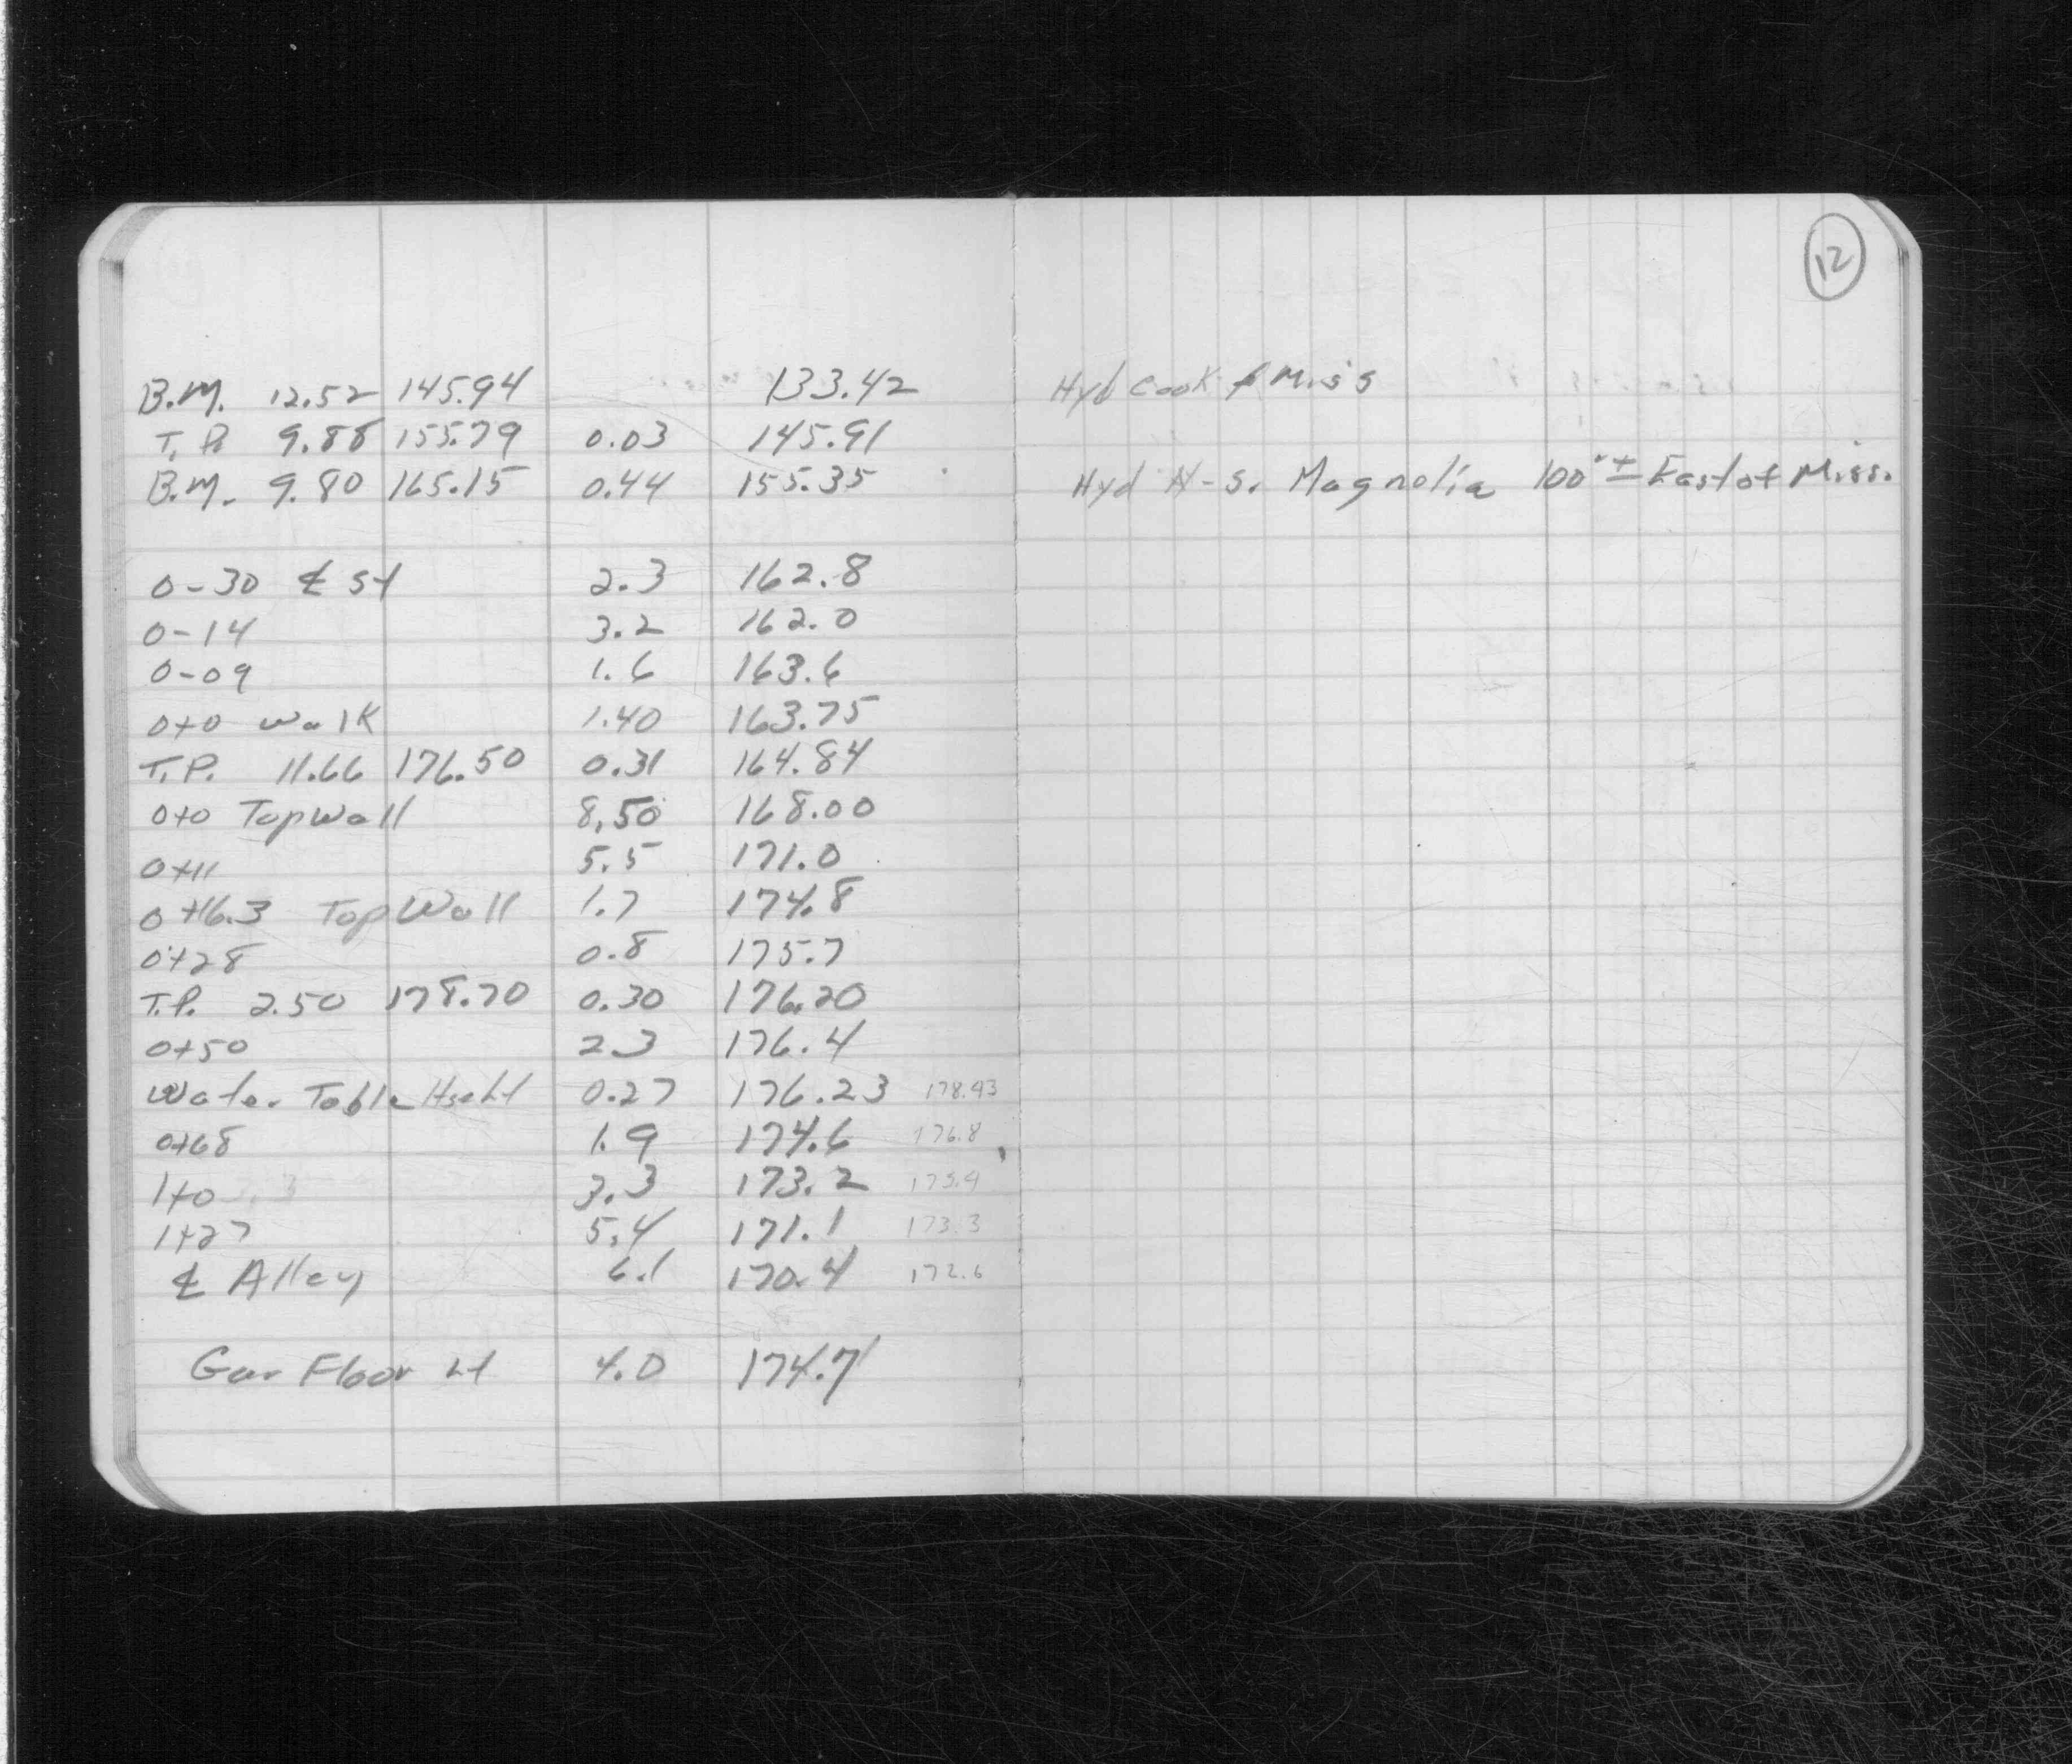 12
B.M. 12.52 145.94 133.42 Hyd Cook & Miss
T.P. 9.88 155.79 0.03 145.91
B.M. 9.80 165.15 0.44 155.35 Hyd N-S. Magnolia 100'± East of Miss.
0-30 ℄ St 2.3 162.8
0-14 3.2 162.0
0-09 1.6 163.6
0+0 Walk 1.40 163.75
T.P. 11.66 176.50 0.31 164.84
0+0 Top Wall 8.50 168.00
0+11 5.5 171.0
0+16.3 Top Wall 1.7 174.8
0+28 0.8 175.7
T.P. 2.50 178.70 0.30 176.20
0+50 2.3 176.4
Water Table 0.27 176.23 178.43
0+68 1.9 174.6 176.8
1+0 3.3 173.2 175.4
1+27 5.4 171.1 173.3
℄ Alley 6.1 170.4 172.6
Gar Floor Lt 4.0 174.7